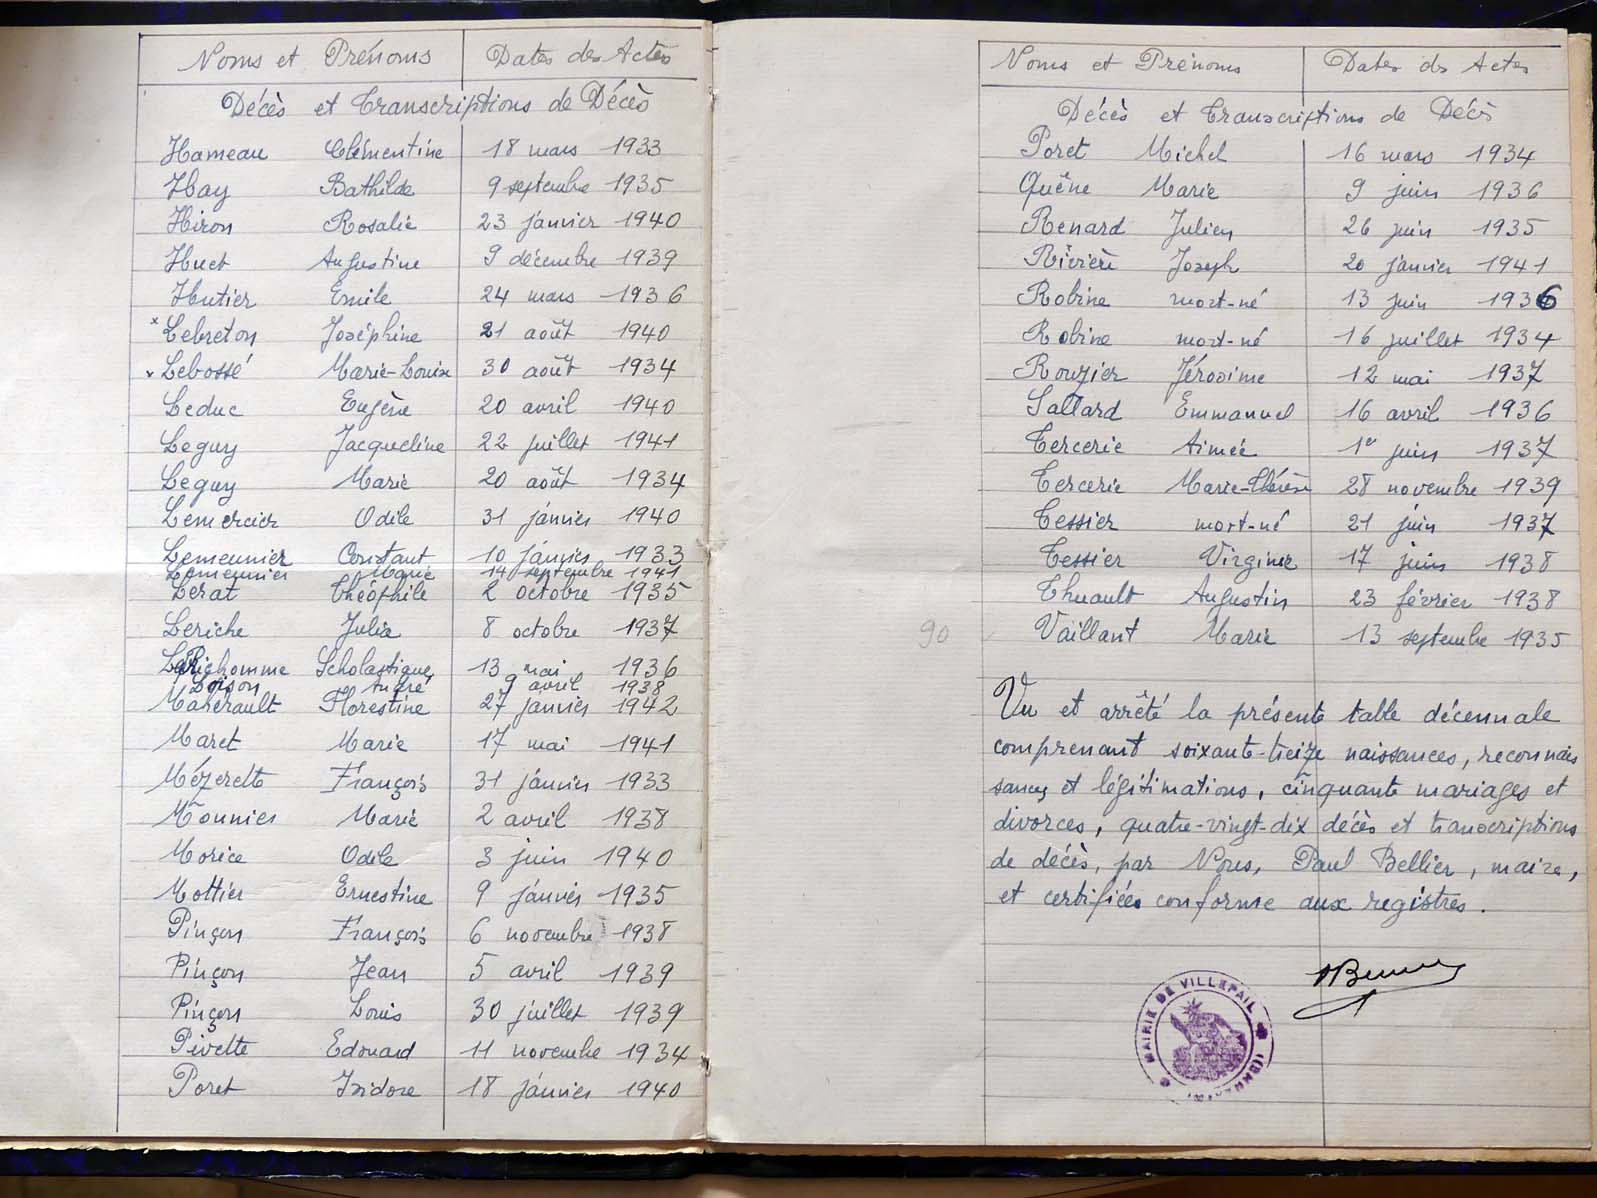 Noms et Prénoms Dates des Actes
Décès et Transcriptions de Décès
Hameau Clémentine 18 mars 1933
Hay Bathilde 9 septembre 1935
Hiron Rosalie 23 janvier 1940
Huet Augustine 9 décembre 1939
Hutier Emile 24 mars 1936
x Lebreton Joséphine 21 août 1940
x Lebossé Marie-Louise 30 août 1934
Leduc Eugène 20 avril 1940
Leguy Jacqueline 22 juillet 1941
Leguy Marie 20 août 1934
Lemercier Odile 31 janvier 1940
Lemeunier Constant 10 janvier 1933
Lemeunier Marie 14 septembre 1941
Lerat Théophile 2 octobre 1935
Leriche Julia 8 octobre 1937
Scholastique 13 mai 1936
Loison André 9 avril 1938
Mahérault Florestine 27 janvier 1942
Maret Marie 17 mai 1941
Mézerette François 31 janvier 1933
Mounier Marie 2 avril 1938
Morice Odile 3 juin 1940
Mottier Ernestine 9 janvier 1935
Pinçon François 6 novembre 1938
Pinçon Jean 5 avril 1939
Pinçon Louis 30 juillet 1939
Pivette Edouard 11 novembre 1934
Poret Isidore 18 janvier 1940
Noms et Prénoms Dates des Actes
Décès et Transcriptions de Décès
Poret Michel 16 mars 1934
Quêne Marie 9 juin 1936
Renard Julien 26 juin 1935
Rivière Joseph 20 janvier 1941
Robine mort-né 13 juin 1936
Robine mort-né 16 juillet 1934
Rouzier Jérosime 12 mai 1937
Sallard Emmanuel 16 avril 1936
Tercerie Aimée 1er juin 1937
Tercerie Marie-Thérèse 28 novembre 1939
Tessier mort-né 21 juin 1937
Tessier Virginie 17 juin 1938
Thuault Augustin 23 février 1938
90 Vaillant Marie 13 septembre 1935
Vu et arrêté la présente table décennale
comprenant soixante-treize naissances, reconnais
sances et légitimations, cinquante mariages et
divorces, quatre-vingt-dix décès et transcriptions
de décès, par Nous, Paul Bellier, maire,
et certifiée conforme aux registres.
MAIRIE DE VILLEPAIL